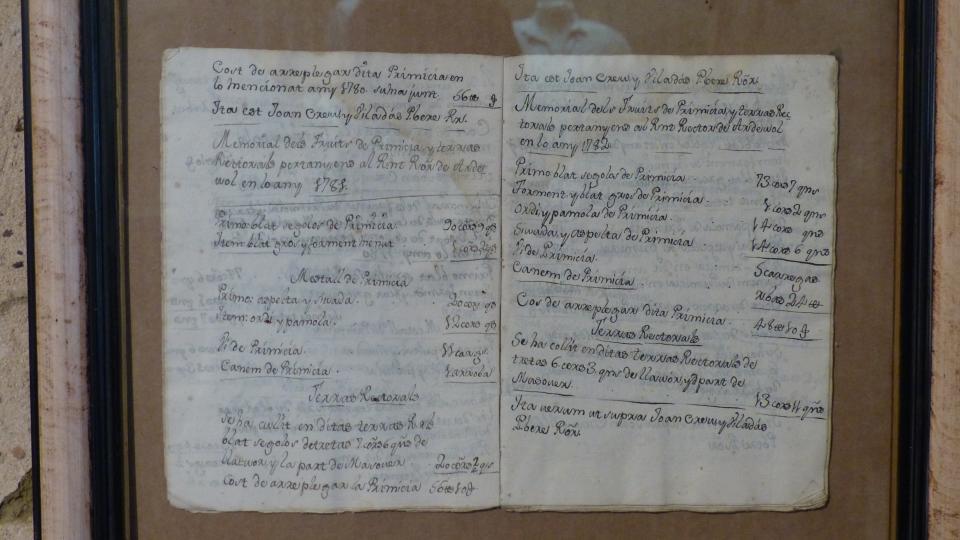 Cost de arreplegar dita Primicia en
lo mencionat any 1780. suma junt. 56
Ita est Joan Creus y Viladás Pbere Rr.
Memorial dels Fruits de Primicia, y terras
Rectorals pertanyens al Rnt Rőr de Arde
vol en lo any 1781.
Primo blat segolos de Primicia
Item blat gros y forment menut
Mestall de Primicia
Primo: aspelta y sivada.
Item: ordi y pamola. 12 cors qs
Vi de Primicia.
Canem de Primicia. 1 arroba
Terras Rectorals
Se ha cullit en ditas terras Rls
blat segolos de tretas 7 cors 6 qs de
llavor y la part de Masover 20 cors 2 qs
Cost de arreplegar la Primicia
Ita est Joan Creus y Viladás Pbere Rőr.
Memorial dels Fruits de Primicia, y terras Rec
torals pertanyens al Rnt Rector de Ardevol
en lo any 1782
Primo blat segolos de Primicia. 73 cors 7 qns
Forment y blat gros de Primicia. 1 cors 2 qns
Ordi y pamola de Primicia. 14 cors qns
Sivada y aspelta de Primicia 14 cors 6 qns
Vi de Primicia. 5 carregas
Canem de Primicia.
Cos de arreplegar dita Primicia.
Terras Rectorals
Se ha collit en ditas terras Rectorals de
tretas 6 cors 3 qns de llavor y dpart de
Masover. 13 cors 4 qns
Ita verum ut supra Joan Creus y Viladás
Pbere Rőr.